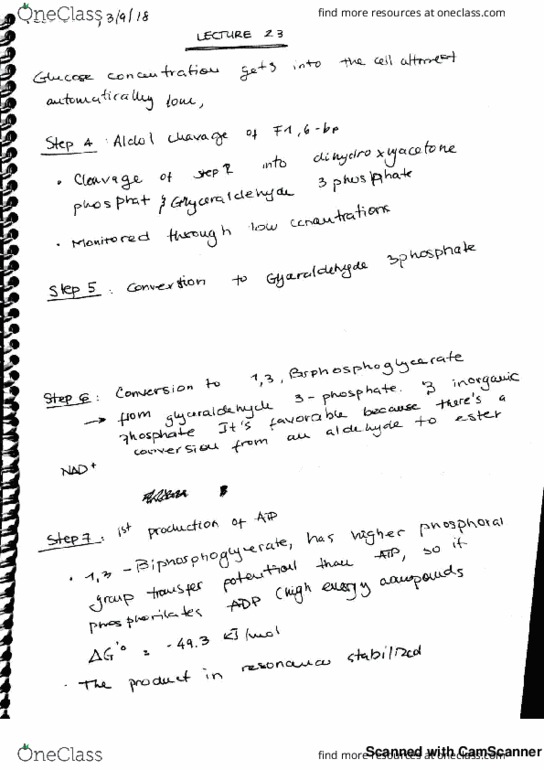 OneClass
find more resources at oneclass.com
3/9/18
LECTURE 23
Glucose concentration gets into the cell
automatically low,
Step 4: Aldol clavage of F1,6-bp
• Cleavage of step 2 into dihydroxyacetone
phosphat & Glyceraldehyde 3 phosphate
• Monitored through low concentrations
Step 5: Convertion to Glyceraldehyde 3phosphate
Step 6: Conversion to 1,3, Bisphosphoglycerate
→ from glyceraldehyde 3-phosphate. & inorganic
phosphate It's favorable because there's a
conversion from an aldehyde to ester
NAD+
Step 7: 1st production of ATP
• 1,3-Biphosphoglycerate, has higher phosphoral
group transfer potential than ATP, so it
phosphorilates ADP (high energy compounds
ΔG'° = -49.3 KJ/mol
• The product in resonance stabilized
Scanned with CamScanner
OneClass
find more resources at oneclass.com